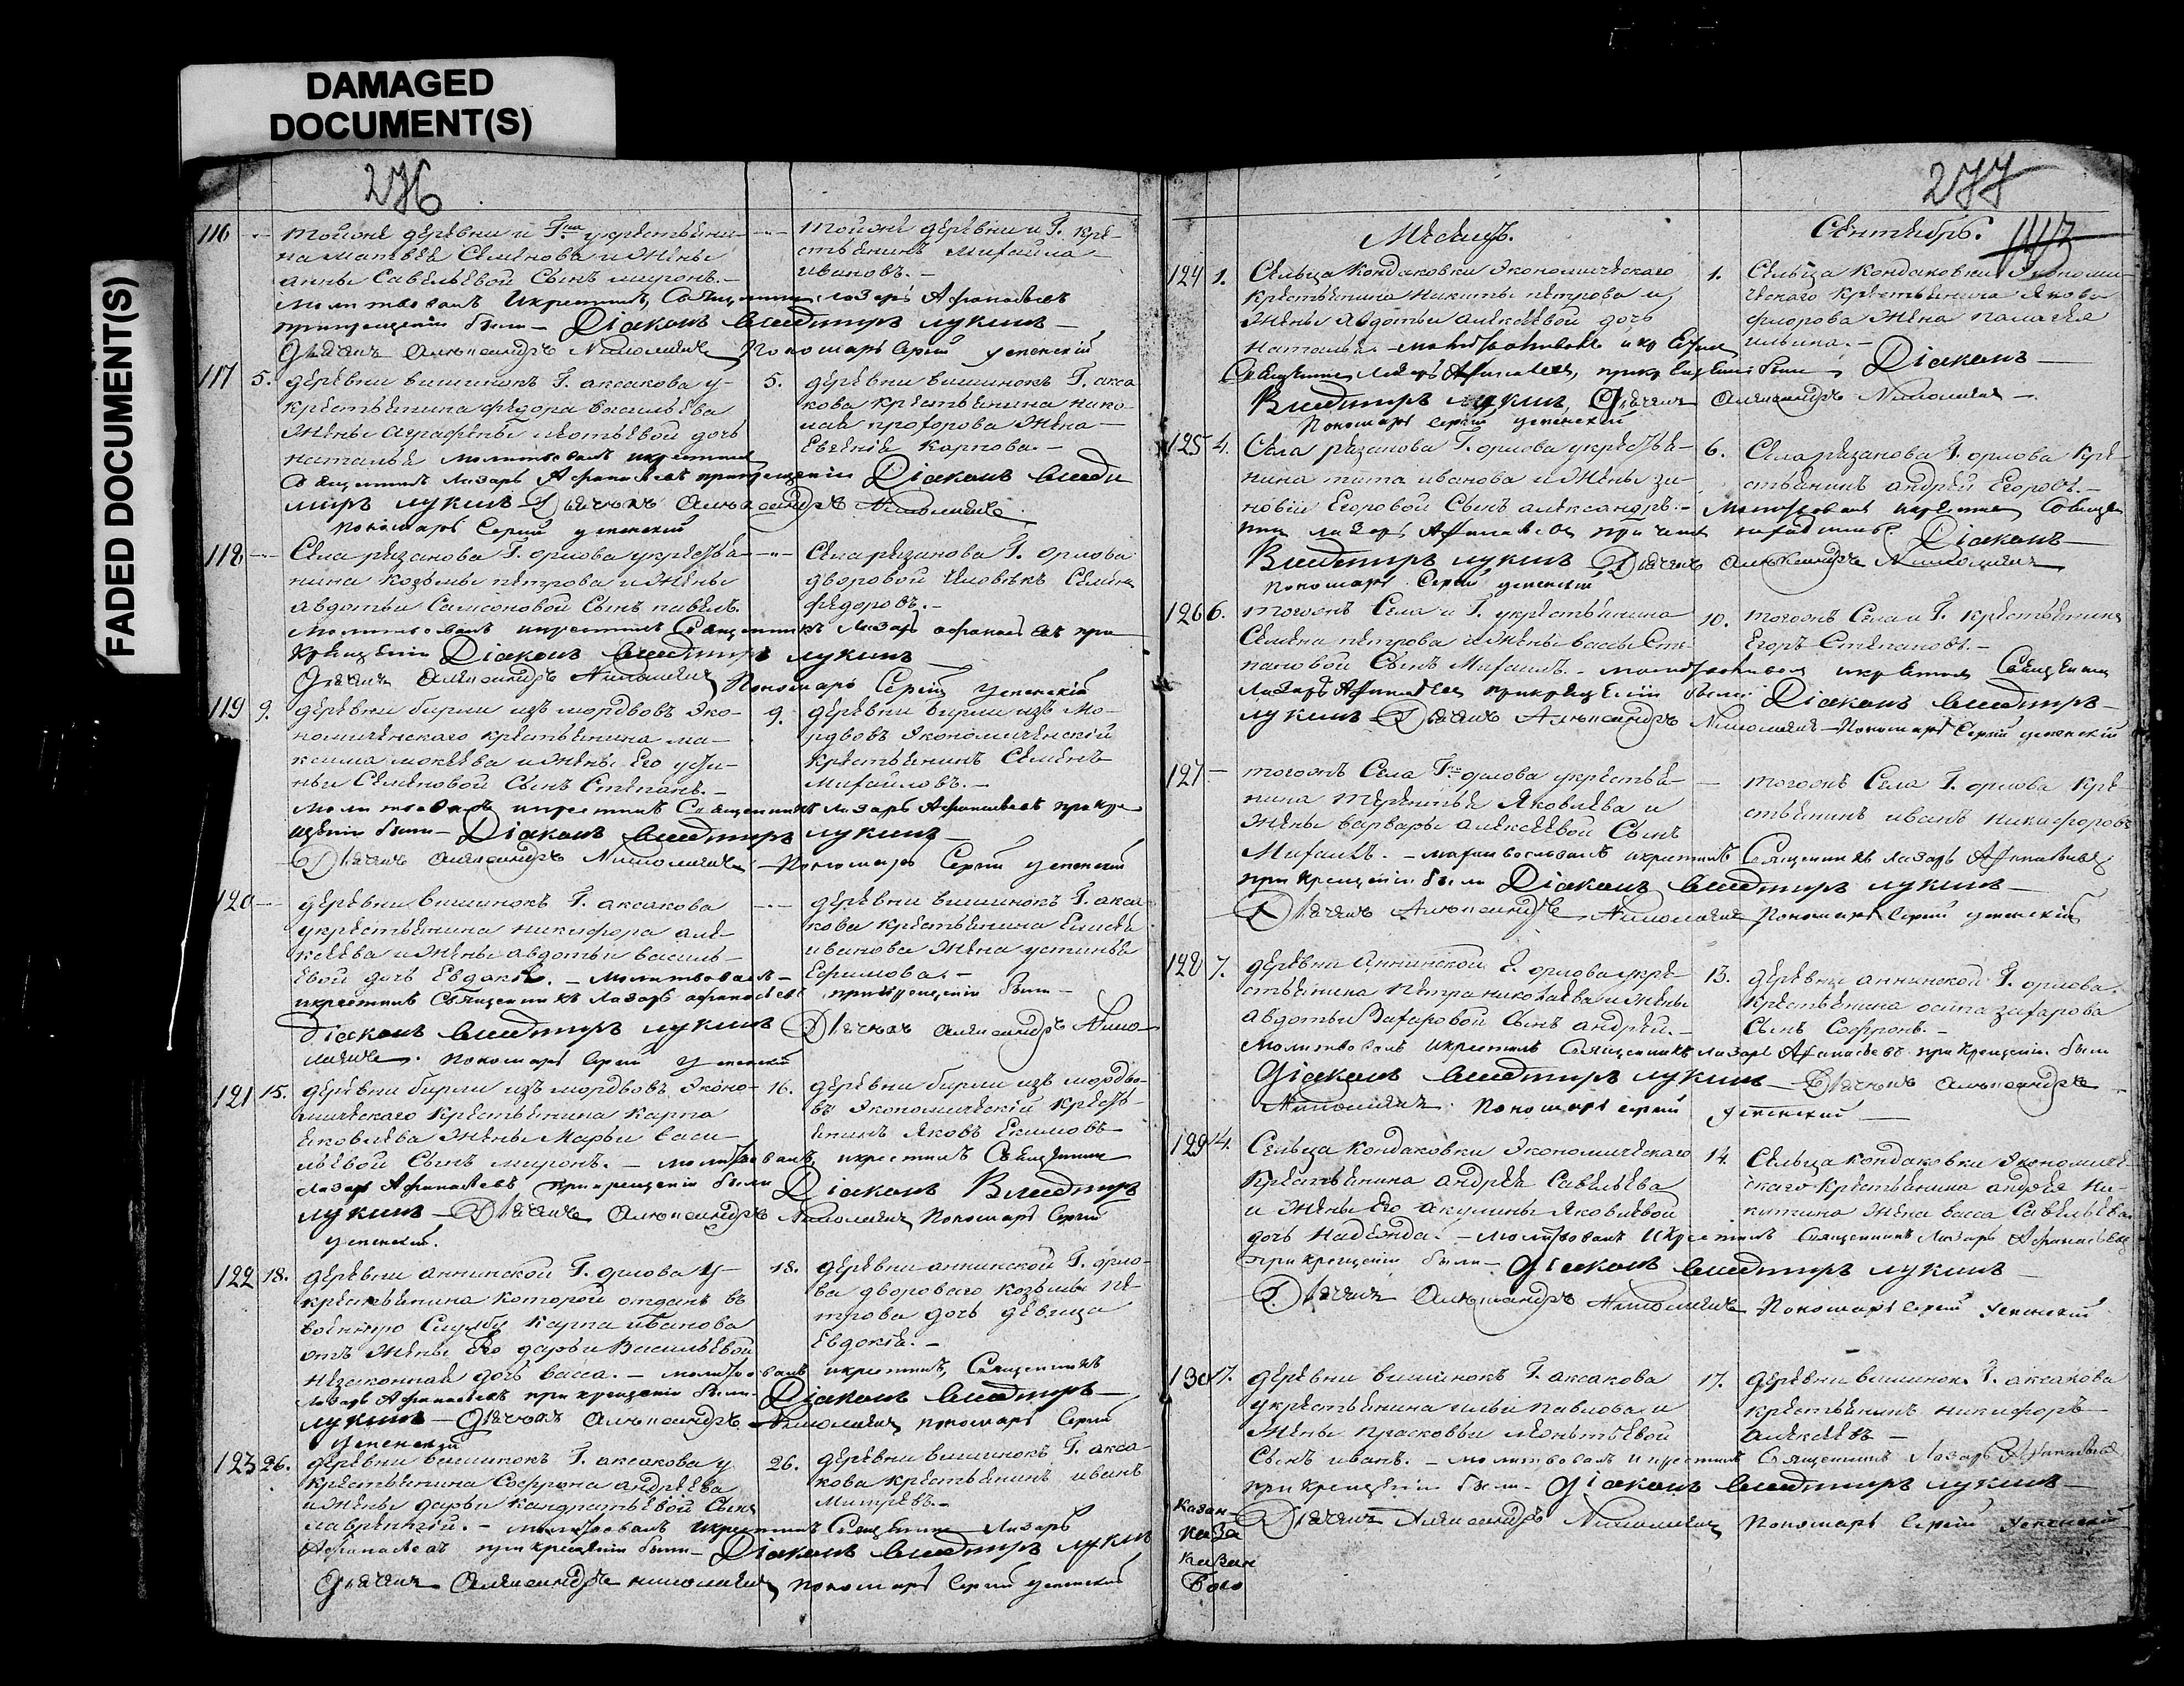 DAMAGED
DOCUMENT(S)
FADED DOCUMENT(S)
276
116 тойже деревни и Г. у крестьяни- тойже деревни и Г. кре-
на Матвея Семенова и жены стьянинъ Михайла
Анны Савельевой сынъ Миронъ. Ивановъ.
молитвовалъ и крестилъ Священникъ Лазарь Афанасьевъ
при крещеніи были Діаконъ Владимиръ Лукинъ
Дьячекъ Александръ Пономарь Сергій Успенскій
117 5. деревни Вишинокъ Г. Аксакова у 5. деревни Вишинокъ Г. Акса
крестьянина Федора Васильева кова крестьянина Нико-
жены Аграфены Леотьевой дочь лая Прохорова жена
Наталья молитвовалъ и крестилъ Евгенія Карпова.
Священникъ Лазарь Афанасьевъ при крещеніи Діаконъ Влади
миръ Лукинъ Дьячекъ Александръ
Пономарь Сергій Успенскій
118 Села Рязанова Г. Орлова у крестья- Села Рязанова Г. Орлова
нина Козьмы Петрова и жены дворовой человѣкъ Семенъ
Авдотьи Самсоновой сынъ Павелъ. Федоровъ.
молитвовалъ и крестилъ Священникъ Лазарь Афанасьевъ при
крещеніи Діаконъ Владимиръ Лукинъ
Дьячекъ Александръ Пономарь Сергій Успенскій
119 9. деревни Бирли изъ мордвовъ эко- 9. деревни Бирли изъ мо-
номическаго крестьянина Ма- рдвовъ экономическій
ксима Мокеева и жены его Усти- крестьянинъ Семенъ
ньи Семеновой сынъ Степанъ. Михайловъ.
молитвовалъ и крестилъ Священникъ Лазарь Афанасьевъ при кре
щеніи были Діаконъ Владимиръ Лукинъ
Дьячекъ Александръ Пономарь Сергій Успенскій
120 деревни Вишинокъ Г. Аксакова деревни Вишинокъ Г. Акса
у крестьянина Никифора Але- кова крестьянина Елисея
ксеева и жены Авдотьи Василь- Иванова жена Устинья
евой дочь Евдокія. молитвовалъ Ефимова.
и крестилъ Священникъ Лазарь Афанасьевъ при крещеніи были
Діаконъ Владимиръ Лукинъ Дьячекъ Александръ
Пономарь Сергій Успенскій
121 15. деревни Бирли изъ мордвовъ эконо- 16. деревни Бирли изъ мордво-
мическаго крестьянина Карпа въ экономическій кресть-
Яковлева жены Марьи Васи- янинъ Яковъ Екимовъ
льевой сынъ Миронъ. молитвовалъ и крестилъ Священникъ
Лазарь Афанасьевъ при крещеніи были Діаконъ Владимиръ
Лукинъ Дьячекъ Александръ Пономарь Сергій
Успенскій.
122 18. деревни Аннинской Г. Орлова у 18. деревни Аннинской Г. Орло-
крестьянина которой отданъ въ ва двороваго Козьмы Пе-
военную службу Карпа Иванова трова дочь девица
отъ жены его Дарьи Васильевой Евдокія.
незаконная дочь Васса. молитвовалъ и крестилъ Священникъ
Лазарь Афанасьевъ при крещеніи были Діаконъ Владимиръ
Лукинъ Дьячекъ Александръ Пономарь Сергій
Успенскій
123 26. деревни Вишинокъ Г. Аксакова у 26. деревни Вишинокъ Г. Акса-
крестьянина Софрона Андреева кова крестьянинъ Иванъ
и жены Дарьи Кандратьевой сынъ Митревъ.
Лаврентій. молитвовалъ и крестилъ Священникъ Лазарь
Афанасьевъ при крещеніи были Діаконъ Владимиръ Лукинъ
Дьячекъ Александръ Пономарь Сергій Успенскій
277
Месяцъ. Сентябрь.
124 1. Сельца Кондаковки экономическаго 1. Сельца Кондаковки экономи-
крестьянина Никиты Петрова и ческаго крестьянина Якова
жены Авдотьи Алексеевой дочь Фиорова жена Палагея
Наталья. молитвовалъ и крестилъ Ильина.
Священникъ Лазарь Афанасьевъ, при крещеніи были Діаконъ
Владимиръ Лукинъ, Дьячекъ Александръ
Пономарь Сергій Успенскій
125 4. Села Рязанова Г. Орлова у крестья- 6. Села Рязанова Г. Орлова кре-
нина Тита Иванова и жены Зи- стьянинъ Андрей Егоровъ.
новіи Егоровой сынъ Александръ. молитвовалъ и крестилъ Священ
никъ Лазарь Афанасьевъ при чемъ находились Діаконъ
Владимиръ Лукинъ Дьячекъ Александръ
Пономарь Сергій Успенскій
126 6. тогожъ Села и Г. у крестьянина 10. тогожъ Села и Г. крестьянинъ
Семена Петрова и жены Вассы Сте- Егоръ Степановъ.
пановой сынъ Михаилъ. молитвовалъ и крестилъ Священникъ
Лазарь Афанасьевъ при крещеніи были Діаконъ Владимиръ
Лукинъ Дьячекъ Александръ Пономарь Сергій Успенскій
127 тогожъ Села Г. Орлова у крестья- тогожъ Села Г. Орлова кре-
нина Терентья Яковлева и стьянинъ Иванъ Никифоровъ
жены Варвары Алексеевой сынъ
Михаилъ. молитвовалъ и крестилъ Священникъ Лазарь Афанасьевъ
при крещеніи были Діаконъ Владимиръ Лукинъ
Дьячекъ Александръ Пономарь Сергій Успенскій
128 7. деревни Аннинской Г. Орлова у кре- 13. деревни Аннинской Г. Орлова
стьянина Петра Николаева и жены крестьянина Осипа Захарова
Авдотьи Захаровой сынъ Андрей. сынъ Софронъ.
молитвовалъ и крестилъ Священникъ Лазарь Афанасьевъ при крещеніи были
Діаконъ Владимиръ Лукинъ Дьячекъ Александръ
Пономарь Сергій Успенскій
129 14. Сельца Кондаковки экономическаго 14. Сельца Кондаковки экономиче-
крестьянина Андрея Савельева скаго крестьянина Андрея Ни-
и жены его Акулины Яковлевой китина жена Васса Савельева
дочь Надежда. молитвовалъ и крестилъ Священникъ Лазарь Афанасьевъ
при крещеніи были Діаконъ Владимиръ Лукинъ
Дьячекъ Александръ Пономарь Сергій Успенскій
130 17. деревни Вишинокъ Г. Аксакова 17. деревни Вишинокъ Г. Аксакова
у крестьянина Ильи Павлова и крестьянинъ Никифоръ
жены Прасковьи Леонтьевой Алексеевъ
сынъ Иванъ. молитвовалъ и крестилъ Священникъ Лазарь Афанасьевъ
при крещеніи были Діаконъ Владимиръ Лукинъ
Дьячекъ Александръ Пономарь Сергій Успенскій